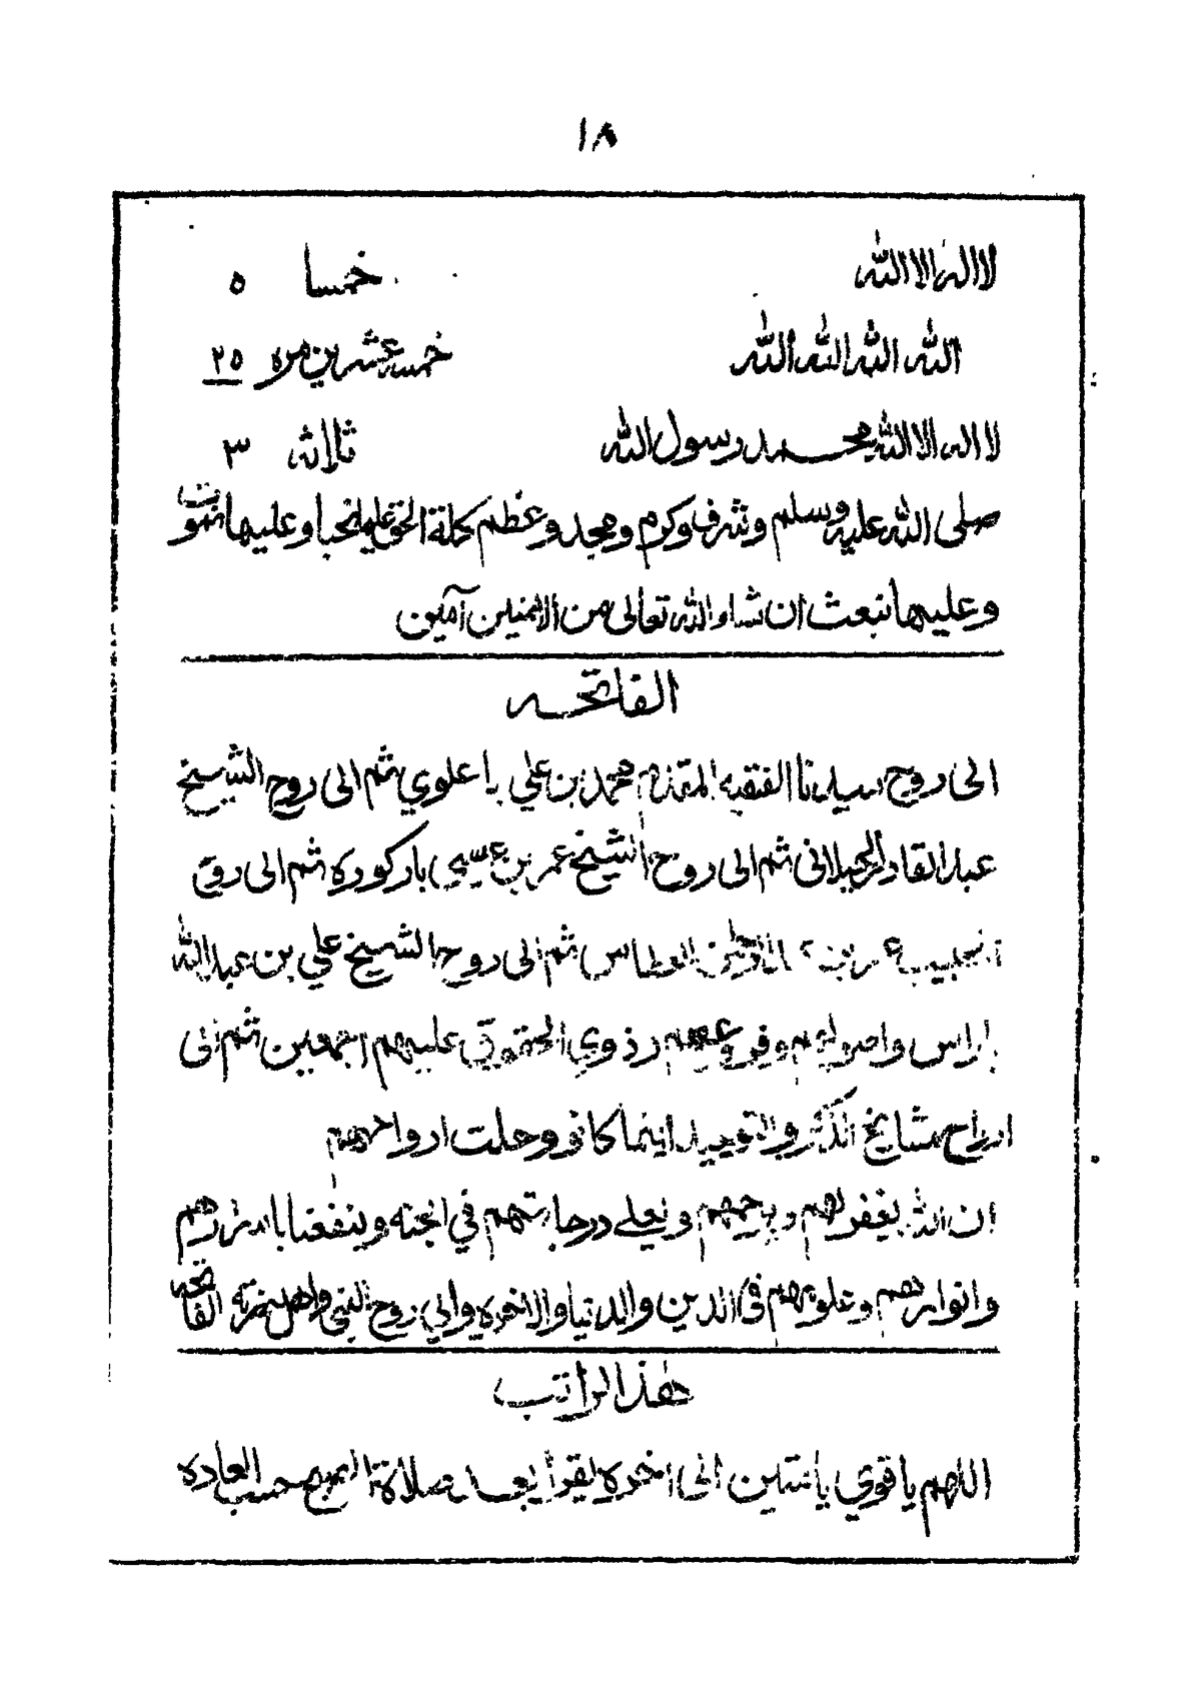 ١٨
لا اله الا الله خمسا ٥
الله الله الله الله خمسه عشرين مره ٢٥
لا اله الا الله محمد رسول الله ثلاثه ٣
صلى الله عليه وسلم وشرف وكرم ومجد وعظم كلمة الحق عليها نحيا وعليها نموت
وعليها نبعث ان شاء الله تعالى من الآمنين آمين
الفاتحه
الى روح سيدنا الفقيه المقدم محمد بن علي باعلوي ثم الى روح الشيخ
عبد القادر الجيلاني ثم الى روح الشيخ عمر بن عيسى باركوره ثم الى روح
الحبيب عمر بن عبد الرحمن العطاس ثم الى روح الشيخ علي بن عبد الله
باراس واصولهم وفروعهم وذوي الحقوق عليهم اجمعين ثم الى
ارواح مشايخ الذكر والتوحيد اينما كانو وحلت ارواحهم
ان الله يغفر لهم ويرحمهم ويعلي درجاتهم في الجنه وينفعنا باسرارهم
وانوارهم وعلومهم في الدين والدنيا والاخره والى روح النبي الفاتحه
هذا الراتب
اللهم يا قوي يا متين الى اخره يقرأ بعد صلاة الصبح حسب العاده